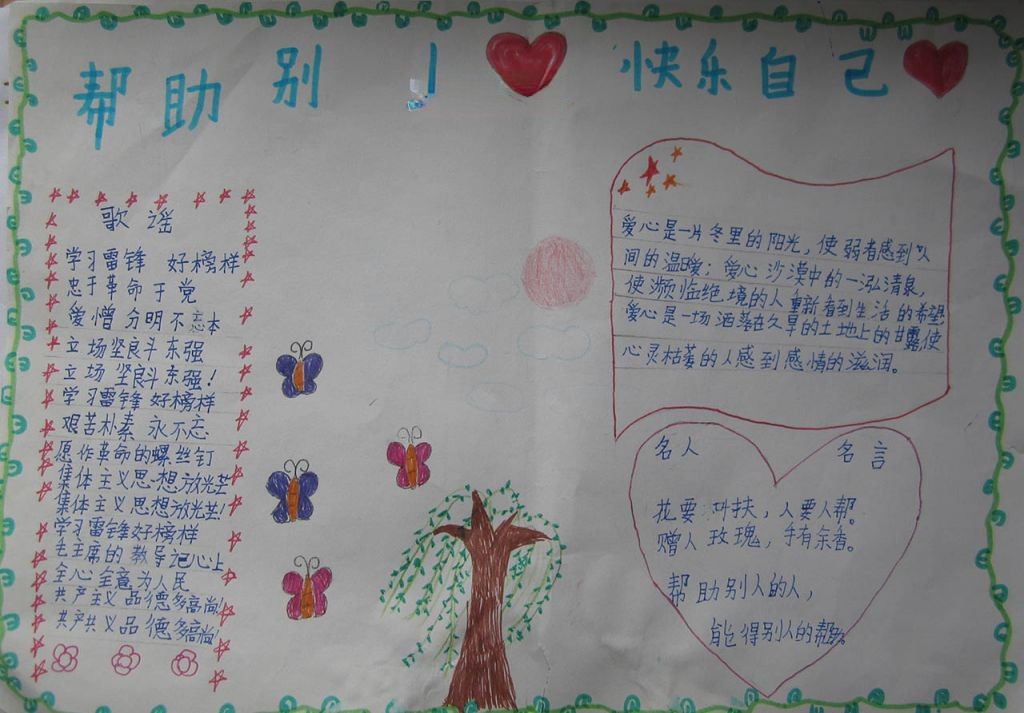 帮助别 快乐自己
歌谣
学习雷锋 好榜样
忠于革命于党
爱憎分明不忘本
立场坚良斗东强
立场坚良斗东强!
学习雷锋好榜样
艰苦朴素永不忘
愿作革命的螺丝钉
集体主义思想放光芒
集体主义思想放光芒!
学习雷锋好榜样
主席的教导记心上
全心全意为人民
共产主义品德多高尚!
共产共义品德多高尚!
爱心是一片冬里的阳光,使弱者感到人
间的温暖;爱心沙漠中的一泓清泉,
使濒临绝境的人重新看到生活的希望
爱心是一场洒落在久旱的土地上的甘露,使
心灵枯萎的人感到感情的滋润。
名人 名言
花要叶扶,人要人帮。
赠人玫瑰,手有余香。
帮助别人的人,
能得别人的帮助。